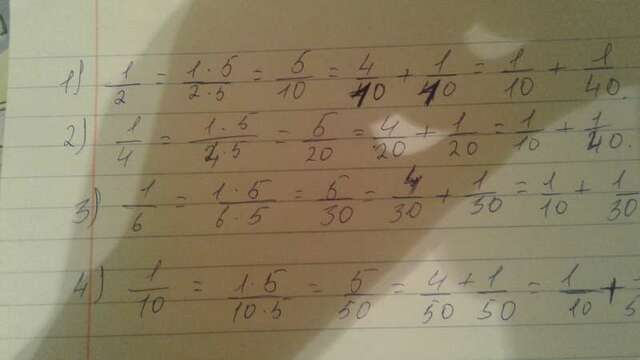 1) 1/2 = 1·5/2·5 = 5/10 = 4/40 + 1/40 = 1/10 + 1/40.
2) 1/4 = 1·5/4·5 = 5/20 = 4/20 + 1/20 = 1/10 + 1/40.
3) 1/6 = 1·5/6·5 = 5/30 = 4/30 + 1/30 = 1/10 + 1/30
4) 1/10 = 1·5/10·5 = 5/50 = 4/50 + 1/50 = 1/10 +